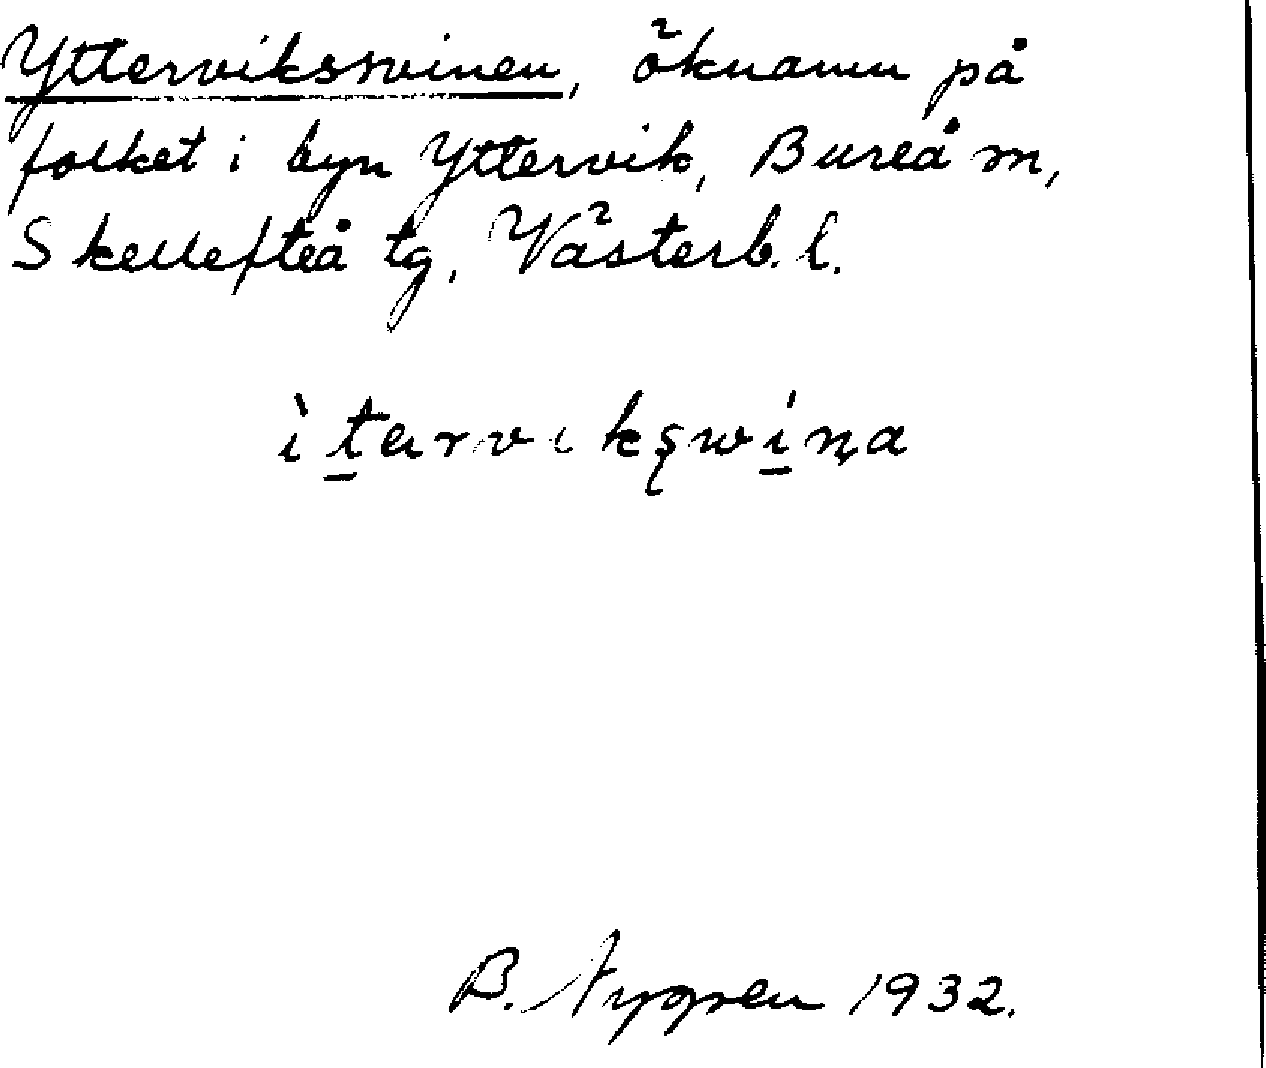 Yttervikssvinen, öknamn på
folket i byn Yttervik, Bureå sn,
Skellefteå tg, Västerb. l.
ìt̲ərvikşwí̲ṇa
B. Nygren 1932.